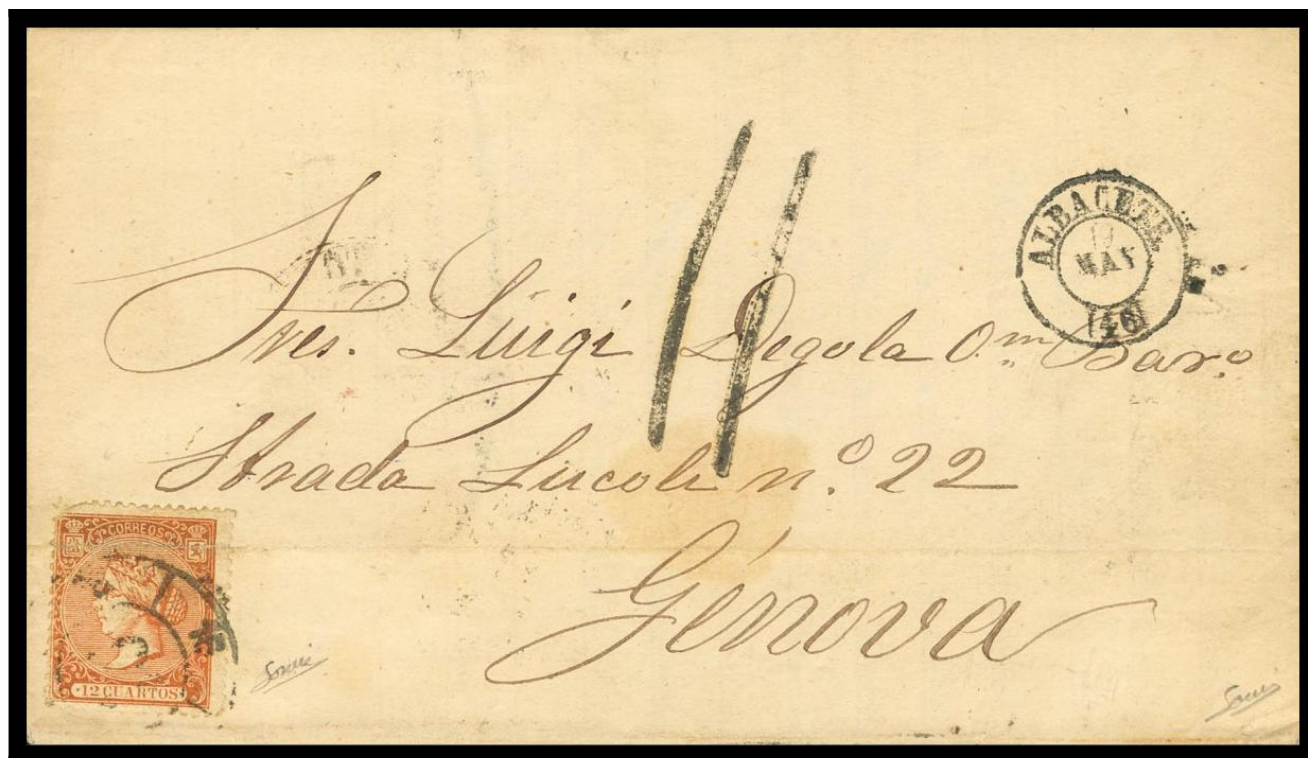 ALBACETE
MAY
(46)
11
Sres. Luigi Degola Q.m Bar.o
Strada Lucoli n.o 22
Génova
CORREOS
12 CUARTOS